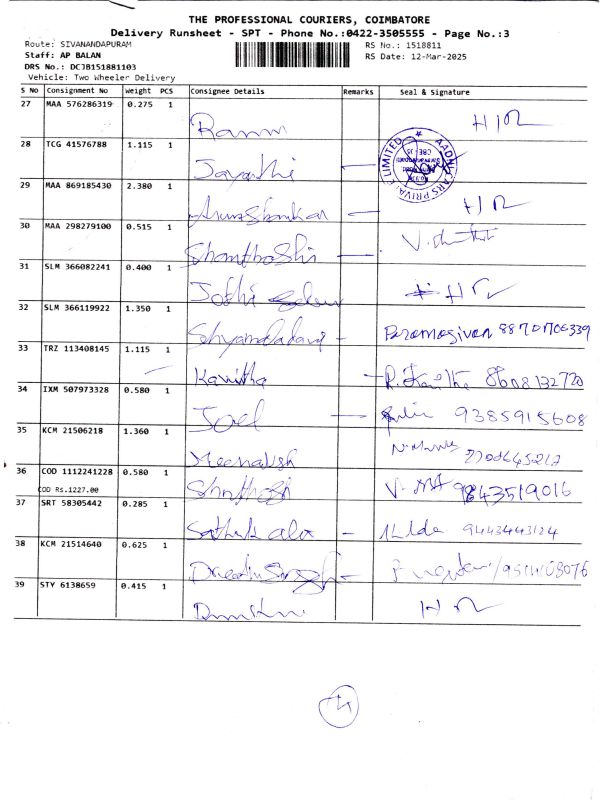 THE PROFESSIONAL COURIERS, COIMBATORE
Delivery Runsheet - SPT - Phone No.:0422-3505555 - Page No.:3
Route: SIVANANDAPURAM
RS No.: 1518811
Staff: AP BALAN
RS Date: 12-Mar-2025
DRS No.: DCJB151881103
Vehicle: Two Wheeler Delivery
S No Consignment No Weight PCS Consignee Details Remarks Seal & Signature
27 MAA 576286319 0.275 1
H/R
28 TCG 41576788 1.115 1
Jayanthi
29 MAA 869185430 2.380 1
Arunshankar H/R
30 MAA 298279100 0.515 1
Shanthoshi
31 SLM 366082241 0.400 1
Jothi H/R
32 SLM 366119922 1.350 1
Paramasivan 8870706339
33 TRZ 113408145 1.115 1
Kavitha 8608132720
34 IXM 507973328 0.580 1
Joel 9385915608
35 KCM 21506218 1.360 1
Meenaksh
36 COD 1112241228 0.580 1
COD Rs.1227.00
9843519016
37 SRT 58305442 0.285 1
9443443124
38 KCM 21514640 0.625 1
39 STY 6138659 0.415 1
H/R